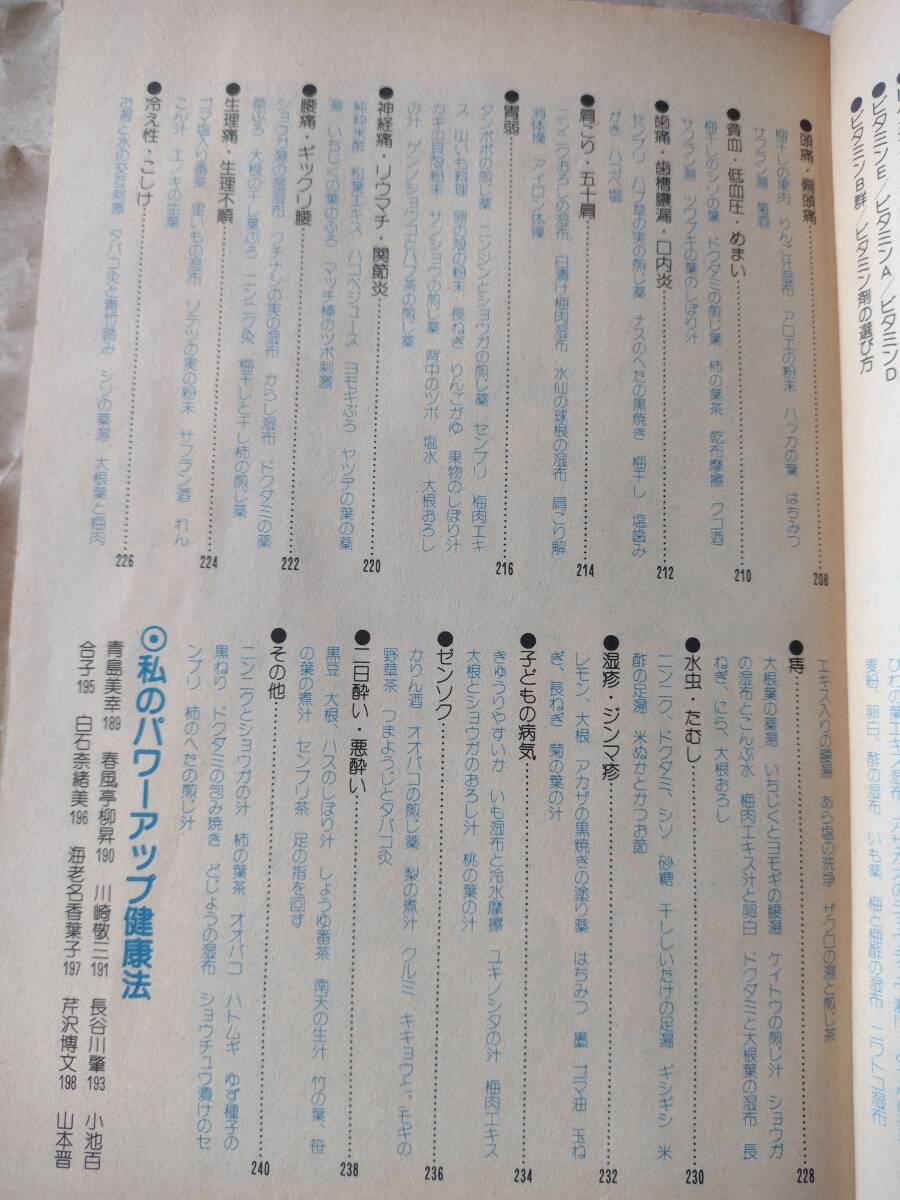 ●ビタミンE／ビタミンA／ビタミンD
●ビタミンB群／ビタミン剤の選び方
●頭痛・偏頭痛 208
梅干しの果肉 りんご汁湿布 アロエの粉末 ハッカの葉 はちみつ
サフラン湯 菊酒
●貧血・低血圧・めまい 210
梅干しのシソの葉 ドクダミの煎じ葉 柿の葉茶 乾布摩擦 クコ酒
サフラン湯 ツワブキの葉のしぼり汁
●歯痛・歯槽膿漏・口内炎 212
センブリ ハブ草の実の煎じ薬 ナスのへたの黒焼き 梅干し 塩歯み
がき ハコベ塩
●肩こり・五十肩 214
ニンニクおろしの湿布 白漬け梅肉湿布 水仙の球根の湿布 肩こり解
消体操 アイロン体操
●胃弱 216
タンポポの煎じ薬 ニンジンとショウガの煎じ薬 センブリ 梅肉エキ
ス 山いも料理 卵の殻の粉末 長ねぎ りんごがゆ 果物のしぼり汁
カキの貝殻粉末 サンショウの煎じ薬 背中のツボ 塩水 大根おろし
の汁 ゲンノショウコとハブ茶の煎じ薬
●神経痛・リウマチ・関節炎 220
純粋米酢 松葉エキス ハコベジュース ヨモギぶろ ヤツデの葉の薬
湯 いちじくの葉のふろ マッチ棒のツボ刺激
●腰痛・ギックリ腰 222
ショウガ湯の温湿布 クチナシの実の湿布 からし湿布 ドクダミの薬
草ぶろ 大根の干し葉ぶろ ニンニク灸 梅干しと干し柿の煎じ薬
●生理痛・生理不順 224
ゴマ塩入り番茶 里いもの湿布 ソテツの実の粉末 サフラン酒 れん
こん汁 エノキの生葉
●冷え性・こしけ 226
お湯と水の交互刺激 タバコ灸と青竹踏み シソの薬湯 大根葉と梅肉
エキス入りの腰湯 あら塩の洗浄 ザクロの湯と煎じ茶
●痔 228
大根葉の薬湯 いちじくとヨモギの腰湯 ケイトウの煎じ汁 ショウガ
の湿布とこんぶ水 梅肉エキス汁と卵白 ドクダミと大根葉の湿布 長
ねぎ、にら、大根おろし
●水虫・たむし 230
ニンニク、ドクダミ、シソ 砂糖 干ししいたけの足湯 ギシギシ 米
酢の足湯 米ぬかとかつお節
●湿疹・ジンマ疹 232
レモン、大根 アカザの黒焼きの塗り薬 はちみつ 墨 ゴマ油 玉ね
ぎ、長ねぎ 菊の葉の汁
●子どもの病気 234
きゅうりやすいか いも湿布と冷水摩擦 ユキノシタの汁 梅肉エキス
大根とショウガのおろし汁 桃の葉の汁
●ゼンソク 236
かりん酒 オオバコの煎じ薬 梨の煮汁 クルミ キキョウと、モギの
野草茶 つまようじとタバコ灸
●二日酔い・悪酔い 238
黒豆 大根、ハスのしぼり汁 しょうゆ番茶 南天の生汁 竹の葉、笹
の葉の煮汁 センブリ茶 足の指を回す
●その他 240
ニンニクとショウガの汁 柿の葉茶 オオバコ ハトムギ ゆず種子の
黒ねり ドクダミの包み焼き どじょうの湿布 ショウチュウ漬けのセ
ンブリ 柿のへたの煎じ汁
◉私のパワーアップ健康法
青島美幸189 春風亭柳昇190 川崎敬三191 長谷川肇193 小池百
合子195 白石奈緒美196 海老名香葉子197 芹沢博文198 山本晋